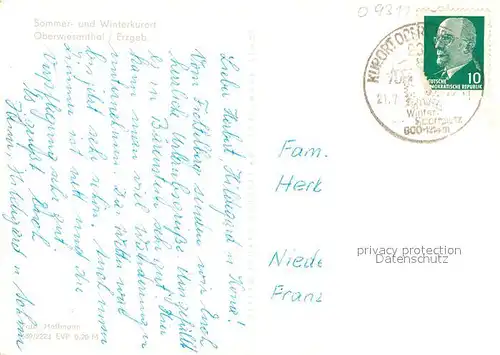 Sommer- und Winterkurort
Oberwiesenthal / Erzgeb.
Liebe Herbert, Hildegard u. Rena!
Vom Fichtelberg senden wir Euch
herzliche Urlaubsgrüße. Uns gefällt
es in Bärenstein sehr gut. Hier
kann man viel Wanderungen
unternehmen. Das Wetter war
bis jetzt sehr schön. Auch unser
Zimmer ist nett und die
Verpflegung sehr gut.
Es grüßt Euch
Heinz, Hildegard u. Sohn
EVP 0,20 M
DEUTSCHE
DEMOKRATISCHE REPUBLIK
10
KURORT OBER
21.7
Winter-
Sportplatz
800-
Fam.
Herb
Niede
Franz
privacy protection
Datenschutz